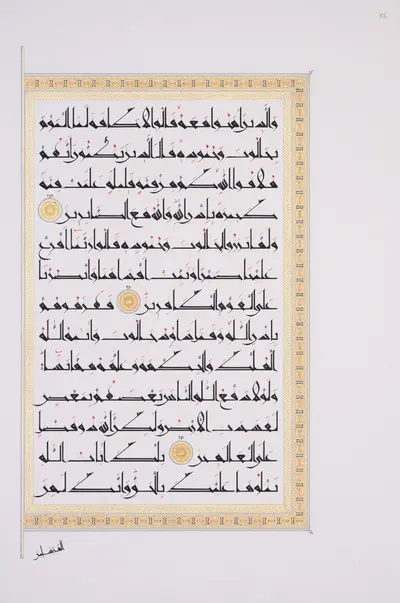 والذين آمنوا معه قالوا لا طاقة لنا اليوم
بجالوت وجنوده قال الذين يظنون أنهم
ملاقوا الله كم من فئة قليلة غلبت فئة
كثيرة بإذن الله والله مع الصابرين
ولما برزوا لجالوت وجنوده قالوا ربنا أفرغ
علينا صبرا وثبت أقدامنا وانصرنا
على القوم الكافرين فهزموهم
بإذن الله وقتل داود جالوت وآتاه الله
الملك والحكمة وعلمه مما يشاء
ولولا دفع الله الناس بعضهم ببعض
لفسدت الأرض ولكن الله ذو فضل
على العالمين تلك آيات الله
نتلوها عليك بالحق وإنك لمن
المرسلين